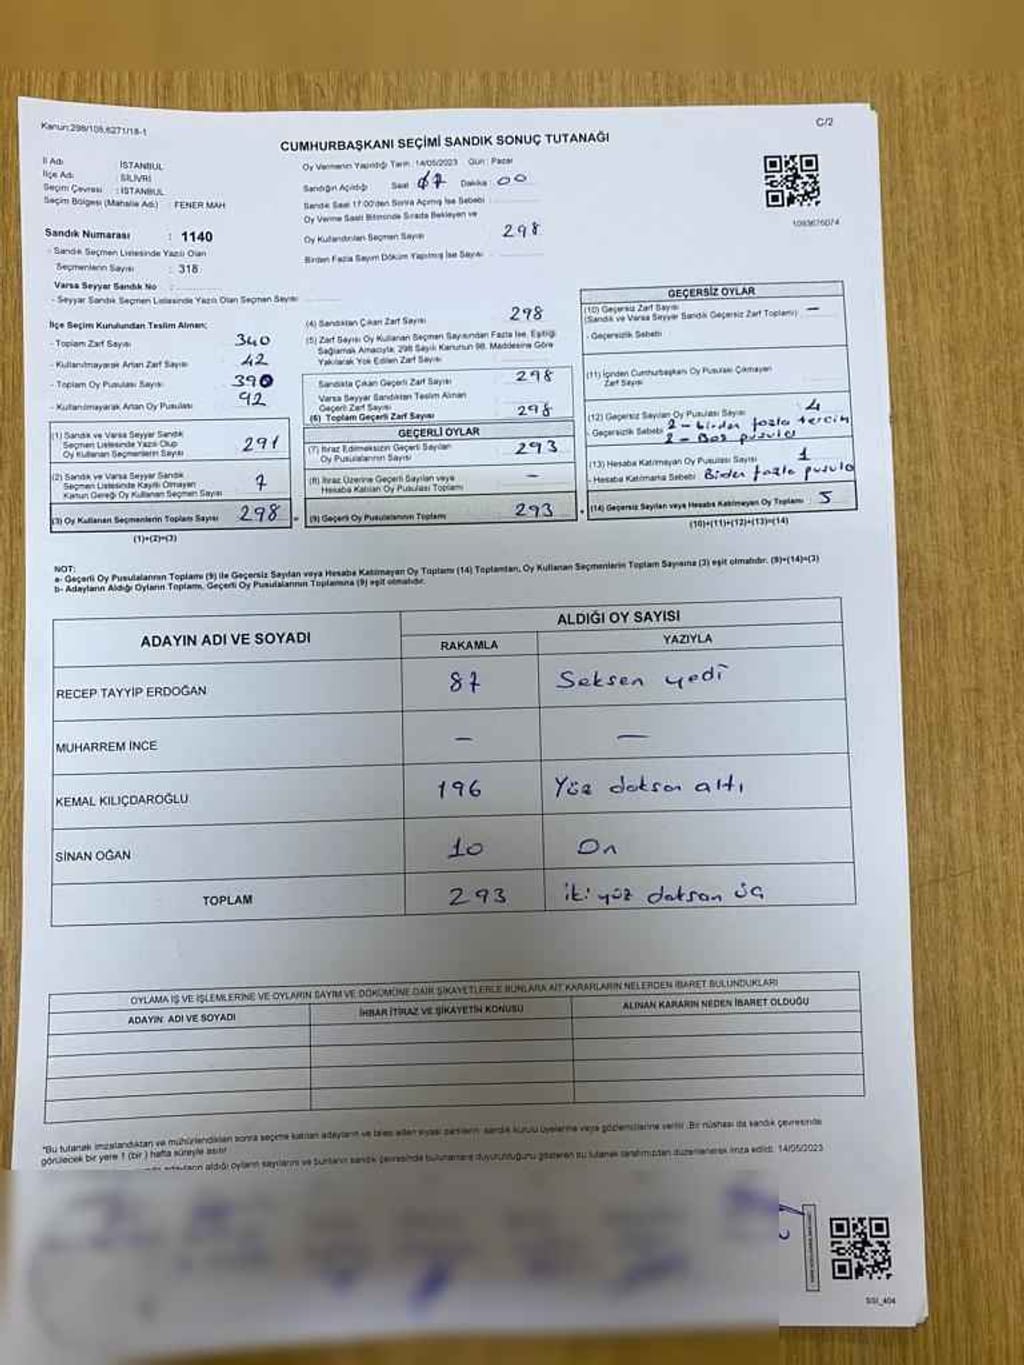 Kanun:298/108,6271/18-1
C/2
CUMHURBAŞKANI SEÇİMİ SANDIK SONUÇ TUTANAĞI
İl Adı : İSTANBUL
İlçe Adı : SİLİVRİ
Seçim Çevresi : İSTANBUL
Seçim Bölgesi (Mahalle Adı) : FENER MAH
Sandık Numarası : 1140
- Sandık Seçmen Listesinde Yazılı Olan
Seçmenlerin Sayısı : 318
Varsa Seyyar Sandık No :
- Seyyar Sandık Seçmen Listesinde Yazılı Olan Seçmen Sayısı
Oy Vermenin Yapıldığı Tarih : 14/05/2023 Gün : Pazar
Sandığın Açıldığı Saat 07 Dakika 00
Sandık Saat 17:00'den Sonra Açılmış İse Sebebi
Oy Verme Saati Bitiminde Sırada Bekleyen ve
Oy Kullandırılan Seçmen Sayısı 298
Birden Fazla Sayım Döküm Yapılmış İse Sayısı
1093676074
İlçe Seçim Kurulundan Teslim Alınan;
- Toplam Zarf Sayısı 340
- Kullanılmayarak Artan Zarf Sayısı 42
- Toplam Oy Pusulası Sayısı 390
- Kullanılmayarak Artan Oy Pusulası 92
(1) Sandık ve Varsa Seyyar Sandık
Seçmen Listesinde Yazılı Olup
Oy Kullanan Seçmenlerin Sayısı 291
(2) Sandık ve Varsa Seyyar Sandık
Seçmen Listesinde Kayıtlı Olmayan
Kanun Gereği Oy Kullanan Seçmen Sayısı 7
(3) Oy Kullanan Seçmenlerin Toplam Sayısı 298
(1)+(2)=(3)
(4) Sandıktan Çıkan Zarf Sayısı 298
(5) Zarf Sayısı Oy Kullanan Seçmen Sayısından Fazla İse, Eşitliği
Sağlamak Amacıyla, 298 Sayılı Kanunun 98. Maddesine Göre
Yakılarak Yok Edilen Zarf Sayısı
Sandıkta Çıkan Geçerli Zarf Sayısı 298
Varsa Seyyar Sandıktan Teslim Alınan
Geçerli Zarf Sayısı
(6) Toplam Geçerli Zarf Sayısı 298
GEÇERLİ OYLAR
(7) İtiraz Edilmeksizin Geçerli Sayılan
Oy Pusulalarının Sayısı 293
(8) İtiraz Üzerine Geçerli Sayılan veya
Hesaba Katılan Oy Pusulası Toplamı —
(9) Geçerli Oy Pusulalarının Toplamı 293
GEÇERSİZ OYLAR
(10) Geçersiz Zarf Sayısı
(Sandık ve Varsa Seyyar Sandık Geçersiz Zarf Toplamı) —
- Geçersizlik Sebebi
(11) İçinden Cumhurbaşkanı Oy Pusulası Çıkmayan
Zarf Sayısı
(12) Geçersiz Sayılan Oy Pusulası Sayısı 4
- Geçersizlik Sebebi 2 - birden fazla tercih
2 - Boş pusula
(13) Hesaba Katılmayan Oy Pusulası Sayısı 1
- Hesaba Katılmama Sebebi Birden fazla pusula
(14) Geçersiz Sayılan veya Hesaba Katılmayan Oy Toplamı 5
(10)+(11)+(12)+(13)=(14)
NOT:
a- Geçerli Oy Pusulalarının Toplamı (9) ile Geçersiz Sayılan veya Hesaba Katılmayan Oy Toplamı (14) Toplamları, Oy Kullanan Seçmenlerin Toplam Sayısına (3) eşit olmalıdır. (9)+(14)=(3)
b- Adayların Aldığı Oyların Toplamı, Geçerli Oy Pusulalarının Toplamına (9) eşit olmalıdır.
ADAYIN ADI VE SOYADI
ALDIĞI OY SAYISI
RAKAMLA YAZIYLA
RECEP TAYYİP ERDOĞAN 87 Seksen yedi
MUHARREM İNCE — —
KEMAL KILIÇDAROĞLU 196 Yüz doksan altı
SİNAN OĞAN 10 On
TOPLAM 293 iki yüz doksan üç
OYLAMA İŞ VE İŞLEMLERİNE VE OYLARIN SAYIM VE DÖKÜMÜNE DAİR ŞİKAYETLERLE BUNLARA AİT KARARLARIN NELERDEN İBARET BULUNDUKLARI
ADAYIN ADI VE SOYADI İHBAR İTİRAZ VE ŞİKAYETİN KONUSU ALINAN KARARIN NEDEN İBARET OLDUĞU
*Bu tutanak imzalandıktan ve mühürlendikten sonra seçime katılan adayların ve talep eden siyasi partilerin sandık kurulu üyelerine veya gözlemcilerine verilir. Bir nüshası da sandık çevresinde
görülecek bir yere 1 (bir) hafta süreyle asılır.
adayların aldığı oyların sayılarını ve bunların sandık çevresinde bulunanlara duyurulduğunu gösteren bu tutanak tarafımızdan düzenlenerek imza edildi. 14/05/2023
SSI_404